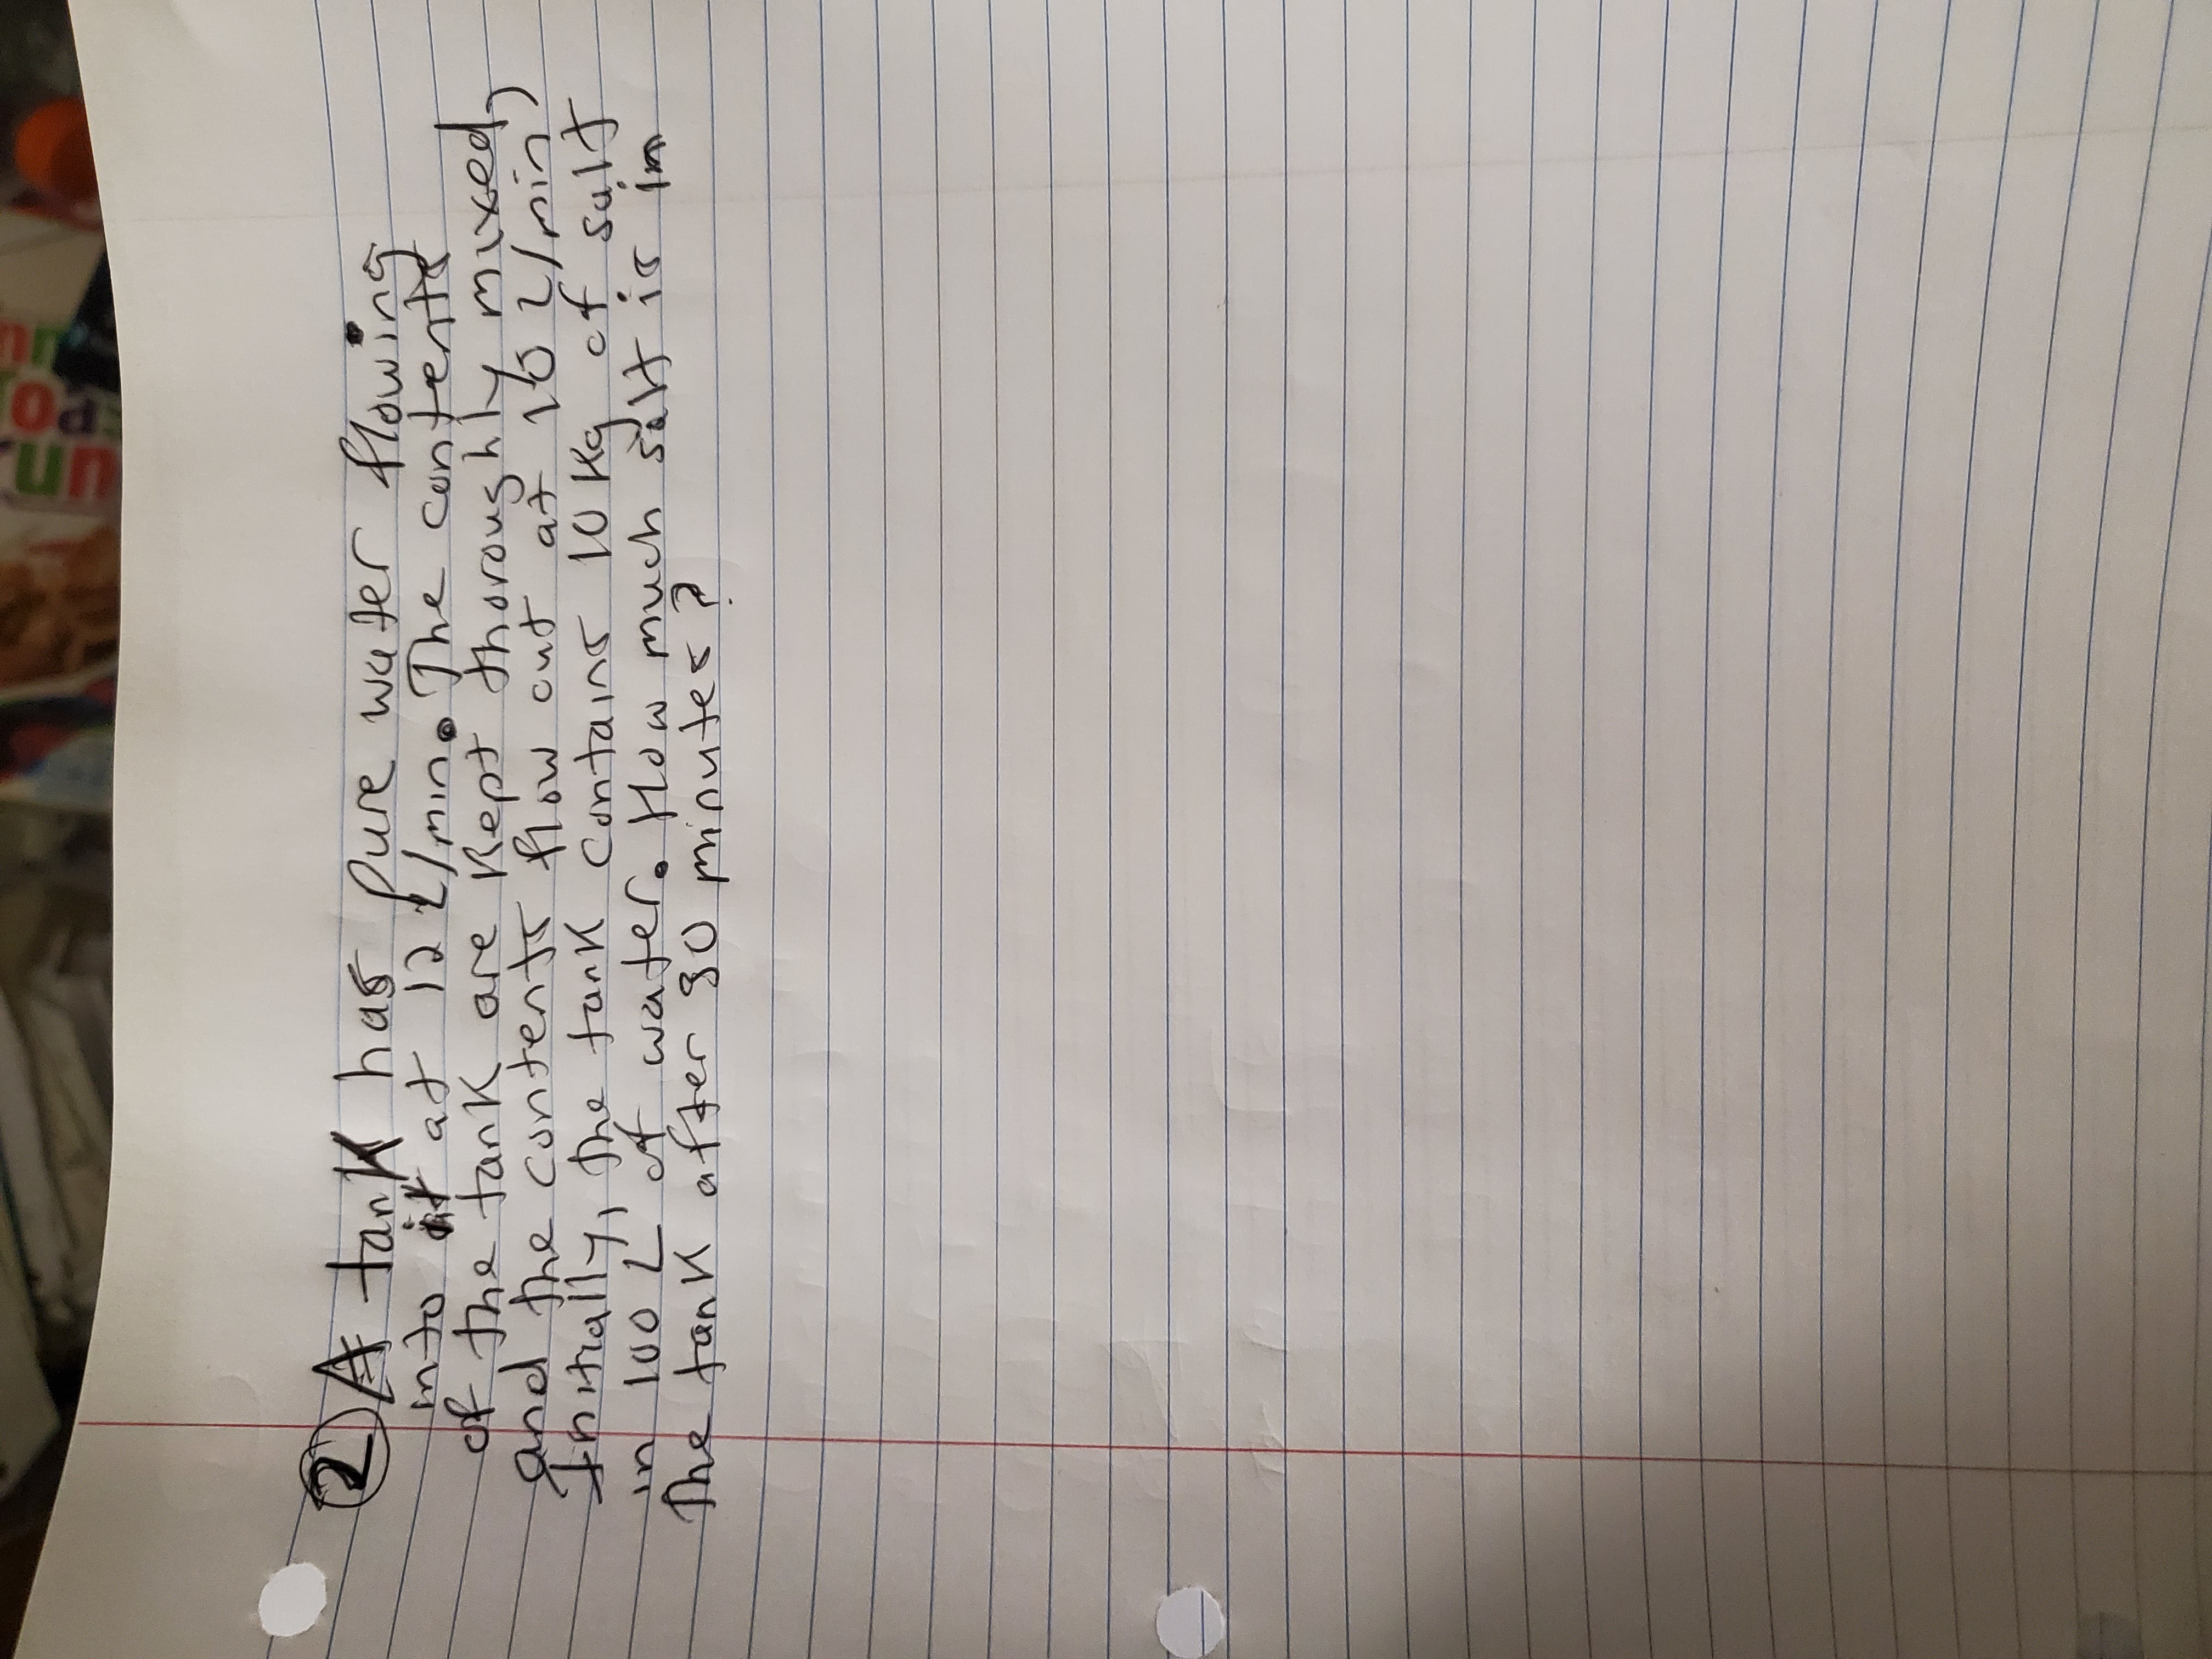 ② A tank has pure water flowing
into it at 12 L/min. The contents
of the tank are kept thoroughly mixed,
and the contents flow out at 10 L/min
Initially, the tank contains 10 kg of salt
in 100 L of water. How much salt is in
The tank after 30 minutes?
un